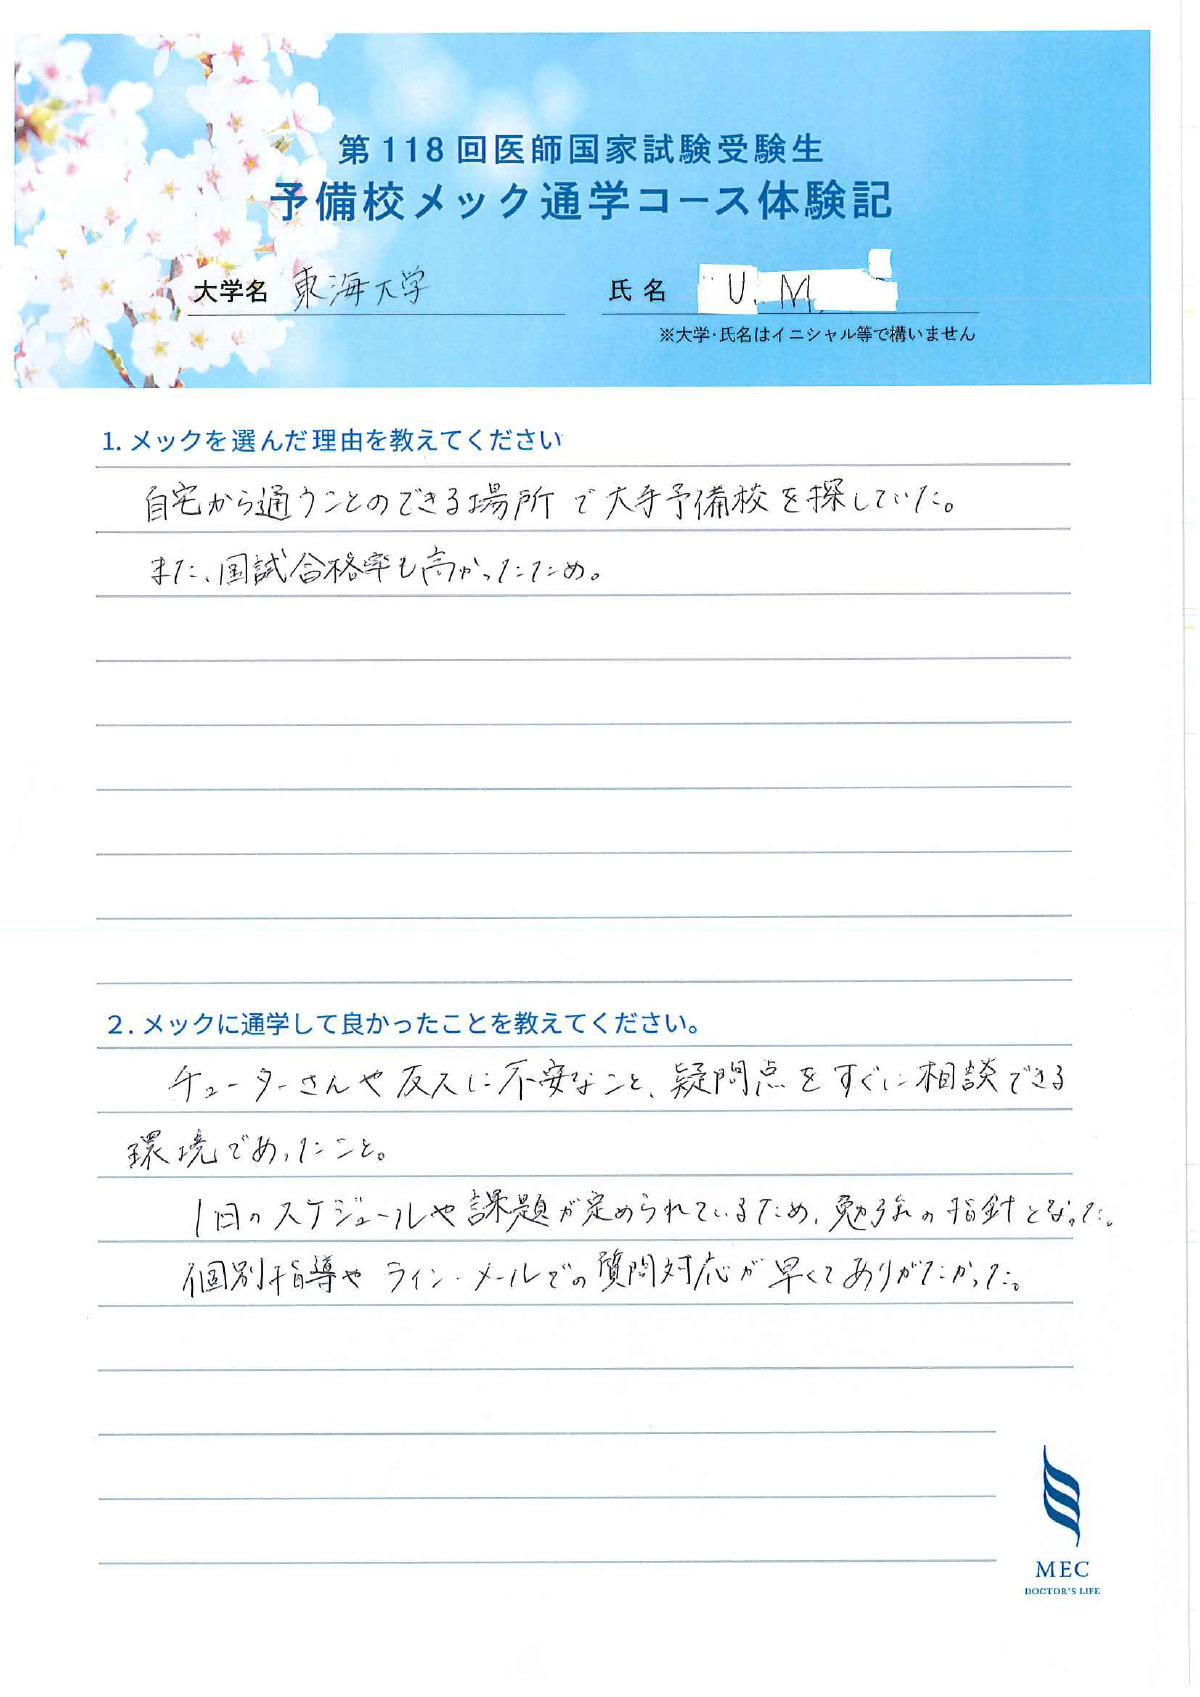 第118回医師国家試験受験生
予備校メック通学コース体験記
大学名 東海大学 氏名 U. M.
※大学・氏名はイニシャル等で構いません
1. メックを選んだ理由を教えてください
自宅から通うことのできる場所で大手予備校を探していた。
また、国試合格率も高かったため。
2. メックに通学して良かったことを教えてください。
チューターさんや友人に不安なこと、疑問点をすぐに相談できる
環境であったこと。
1日のスケジュールや課題が定められているため、勉強の指針となった。
個別指導やライン・メールでの質問対応が早くてありがたかった。
MEC
DOCTOR'S LIFE